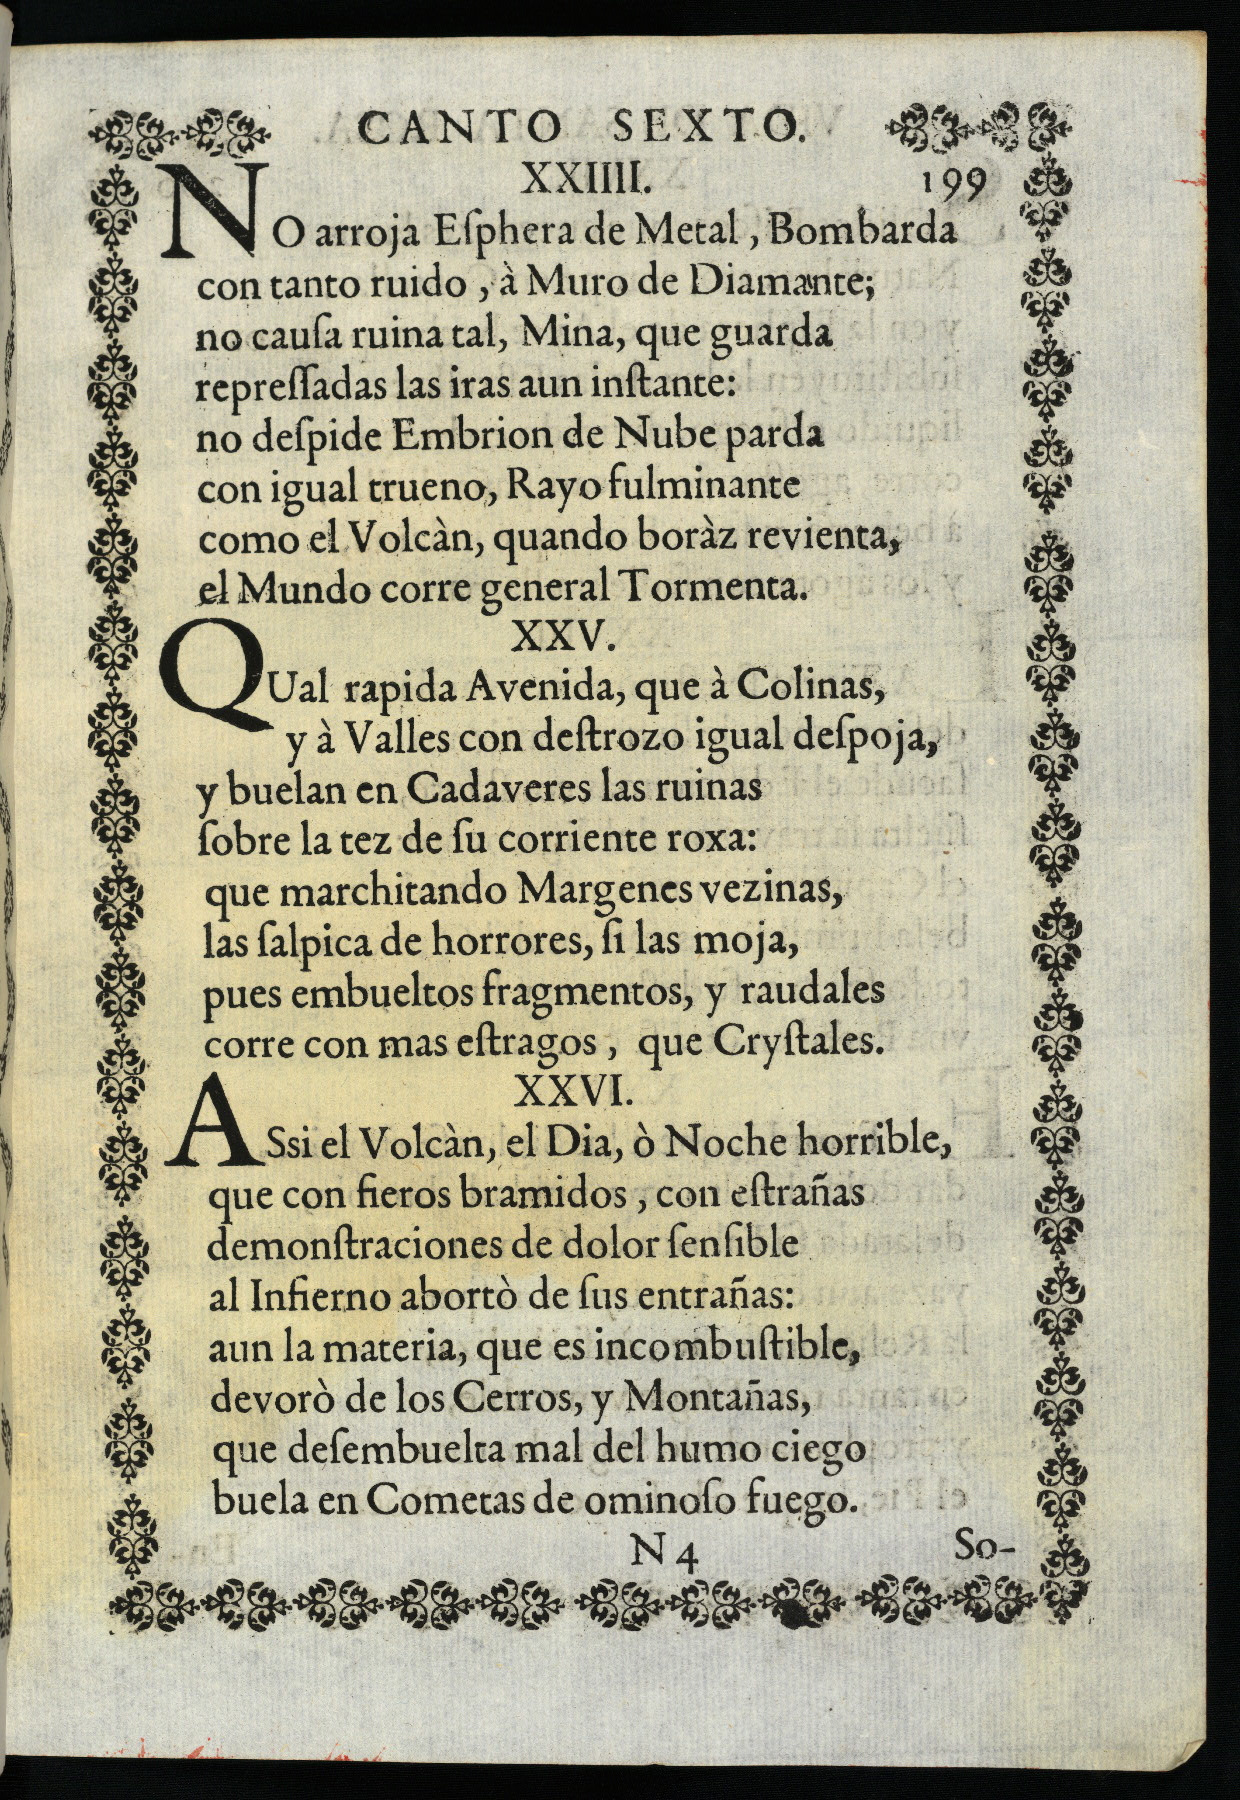 CANTO SEXTO.
XXIIII. 199
NO arroja Eſphera de Metal, Bombarda
con tanto ruido, à Muro de Diamante;
no cauſa ruina tal, Mina, que guarda
repreſſadas las iras aun inſtante:
no deſpide Embrion de Nube parda
con igual trueno, Rayo fulminante
como el Volcàn, quando boràz revienta,
el Mundo corre general Tormenta.
XXV.
QUal rapida Avenida, que à Colinas,
y à Valles con deſtrozo igual deſpoja,
y buelan en Cadaveres las ruinas
ſobre la tez de ſu corriente roxa:
que marchitando Margenes vezinas,
las ſalpica de horrores, ſi las moja,
pues embueltos fragmentos, y raudales
corre con mas eſtragos, que Cryſtales.
XXVI.
ASsi el Volcàn, el Dia, ò Noche horrible,
que con fieros bramidos, con eſtrañas
demonſtraciones de dolor ſenſible
al Infierno abortò de ſus entrañas:
aun la materia, que es incombuſtible,
devorò de los Cerros, y Montañas,
que deſembuelta mal del humo ciego
buela en Cometas de ominoſo fuego.
N 4 So-